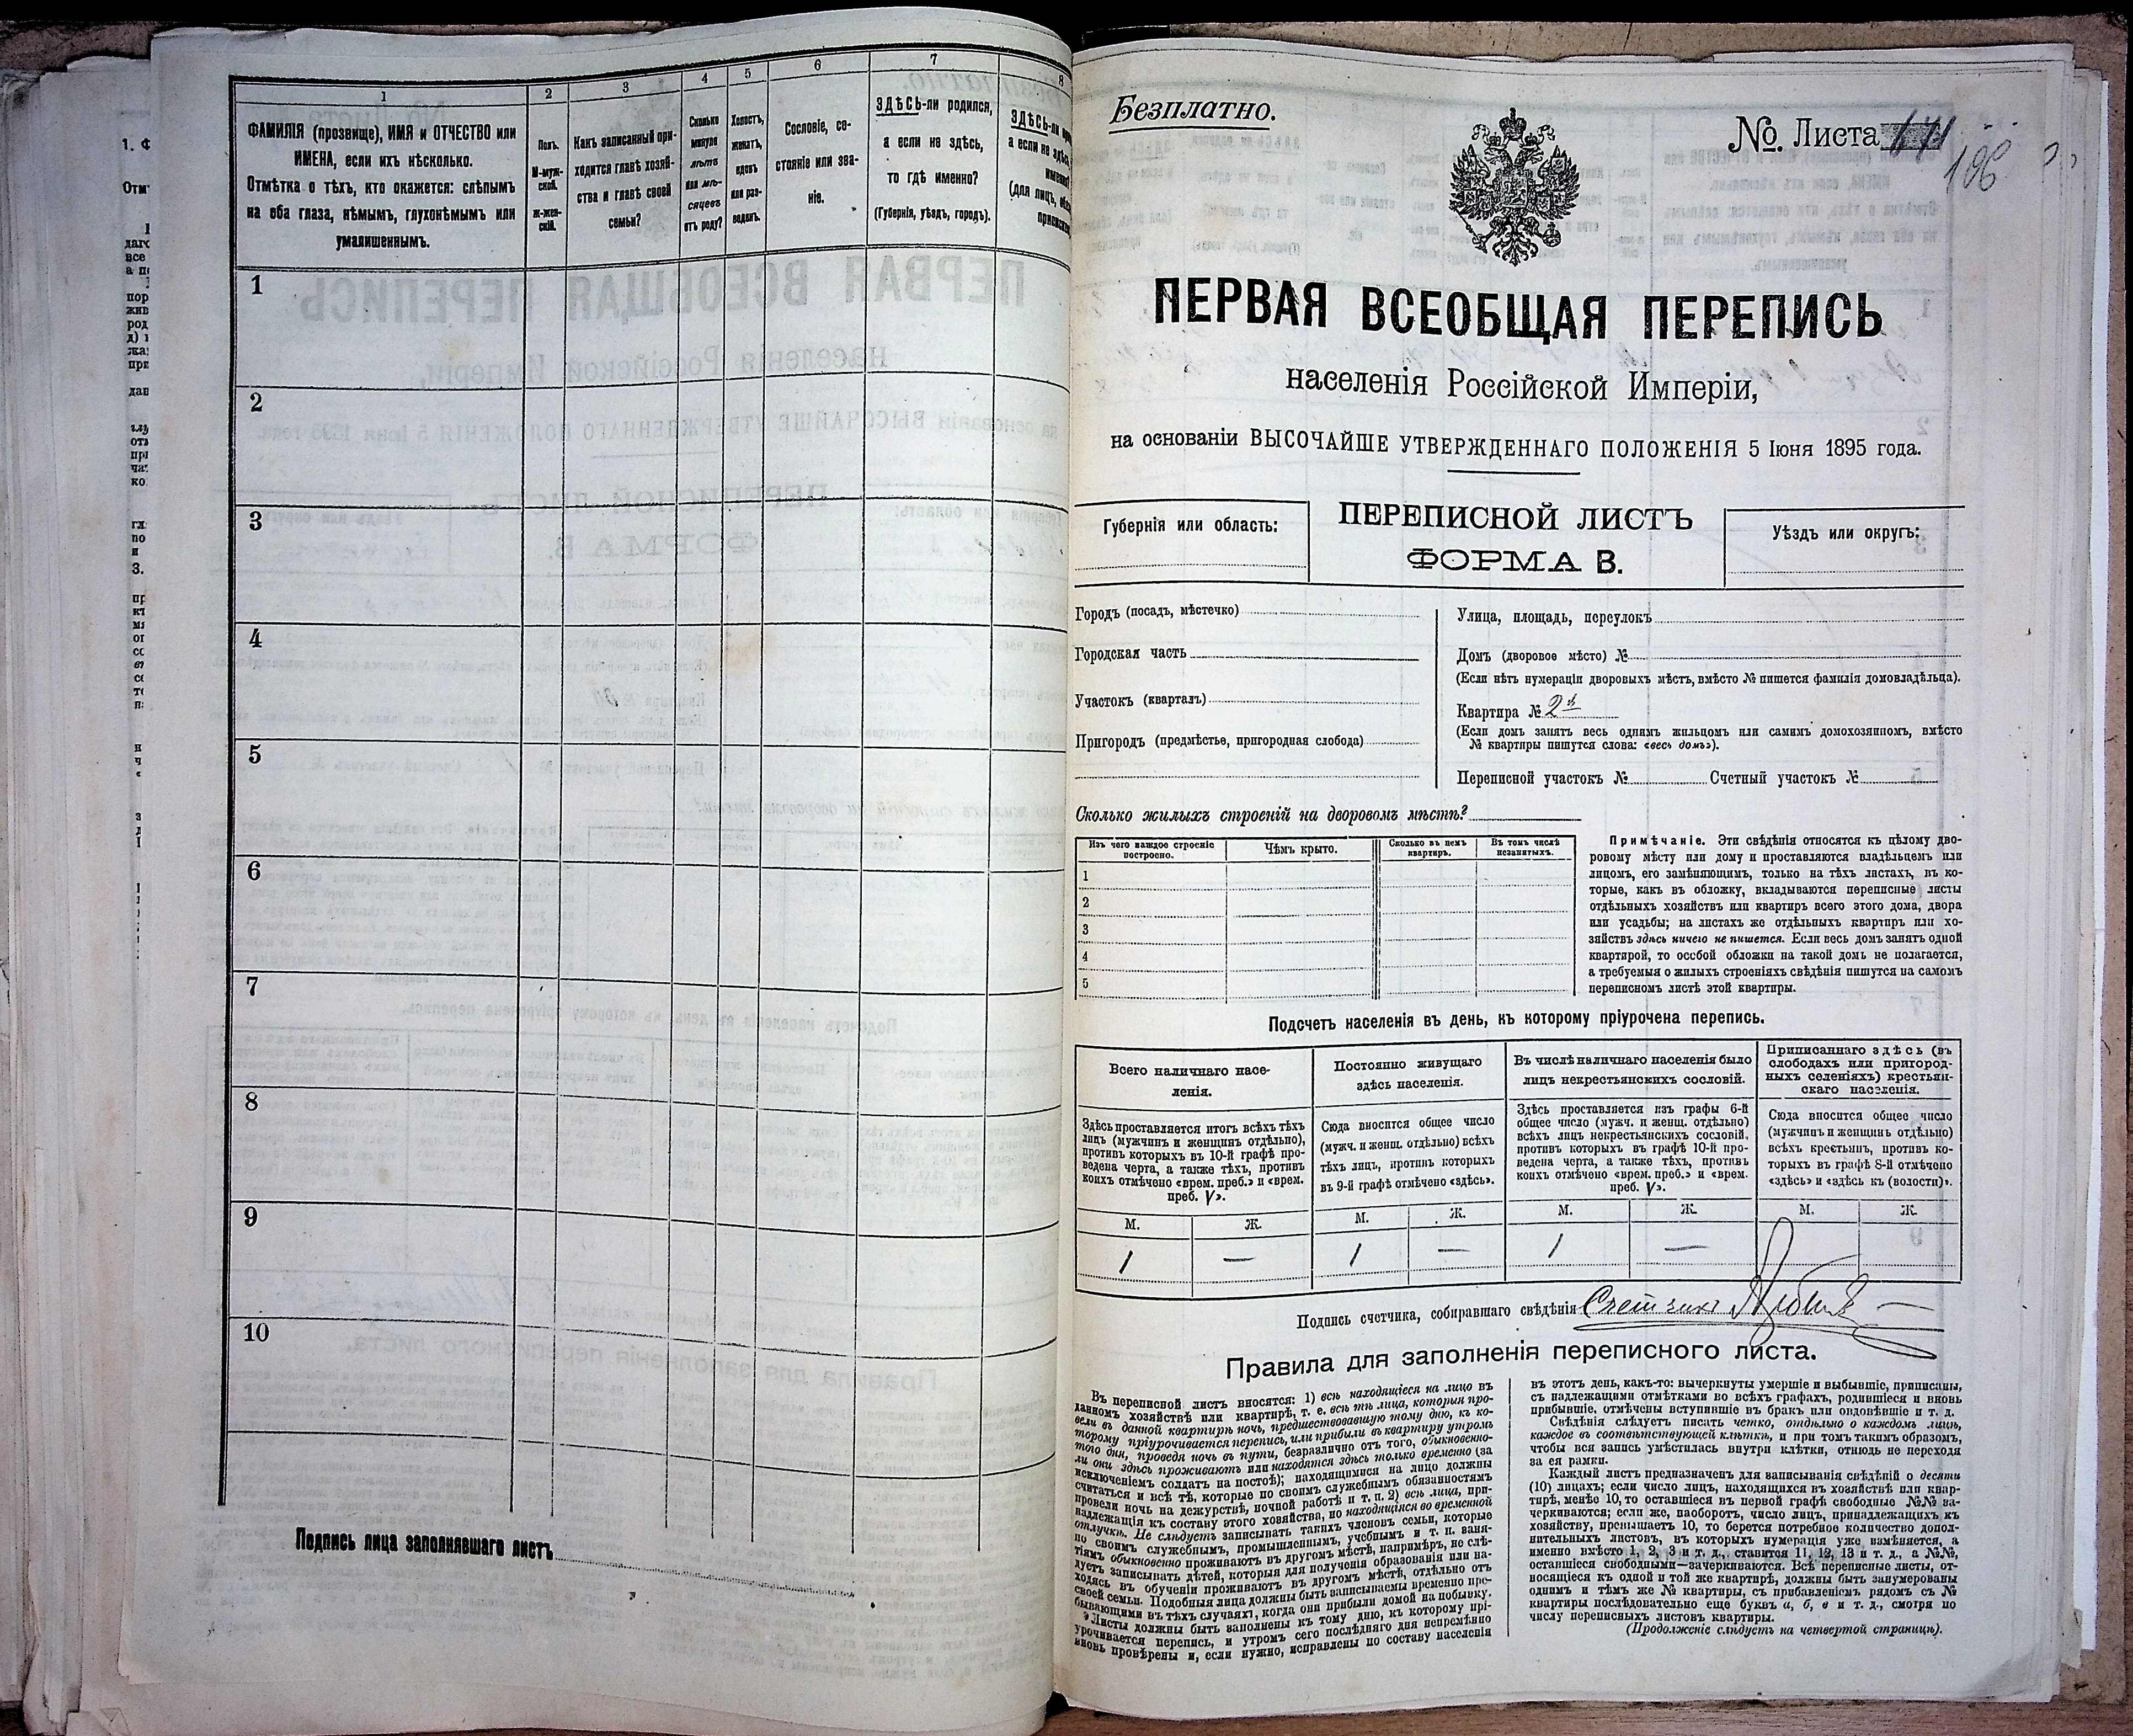 1
ФАМИЛІЯ (прозвище), ИМЯ и ОТЧЕСТВО или
ИМЕНА, если ихъ нѣсколько.
Отмѣтка о тѣхъ, кто окажется: слѣпымъ
на оба глаза, нѣмымъ, глухонѣмымъ или
умалишеннымъ.
2
Полъ.
М-муж-
ской.
ж-жен-
скій.
3
Какъ записанный при-
ходится главѣ хозяй-
ства и главѣ своей
семьи?
4
Сколько
минуло
лѣтъ
или мѣ-
сяцевъ
отъ роду?
5
Холостъ,
женатъ,
вдовъ
или раз-
веденъ.
6
Сословіе, со-
стояніе или зва-
ніе.
7
ЗДѢСЬ-ли родился,
а если не здѣсь,
то гдѣ именно?
(Губернія, уѣздъ, городъ).
8
ЗДѢСЬ-ли
а если не здѣсь
(для лицъ,
1
2
3
4
5
6
7
8
9
10
Подпись лица заполнявшаго листъ
Безплатно.
№ Листа
186
ПЕРВАЯ ВСЕОБЩАЯ ПЕРЕПИСЬ
населенія Россійской Имперіи,
на основаніи ВЫСОЧАЙШЕ УТВЕРЖДЕННАГО ПОЛОЖЕНІЯ 5 Іюня 1895 года.
Губернія или область:
ПЕРЕПИСНОЙ ЛИСТЪ
ФОРМА В.
Уѣздъ или округъ:
Городъ (посадъ, мѣстечко)
Городская часть
Участокъ (кварталъ)
Пригородъ (предмѣстье, пригородная слобода)
Улица, площадь, переулокъ
Домъ (дворовое мѣсто) №
(Если нѣтъ нумераціи дворовыхъ мѣстъ, вмѣсто № пишется фамилія домовладѣльца).
Квартира № 2й
(Если домъ занятъ весь однимъ жильцомъ или самимъ домохозяиномъ, вмѣсто
№ квартиры пишутся слова: «весь домъ»).
Переписной участокъ № Счетный участокъ №
Сколько жилыхъ строеній на дворовомъ мѣстѣ?
Изъ чего каждое строеніе
построено.
Чѣмъ крыто.
Сколько въ немъ
квартиръ.
Въ томъ числѣ
незанятыхъ.
1
2
3
4
5
Примѣчаніе. Эти свѣдѣнія относятся къ цѣлому дво-
ровому мѣсту или дому и проставляются владѣльцемъ или
лицомъ, его замѣняющимъ, только на тѣхъ листахъ, въ ко-
торые, какъ въ обложку, вкладываются переписные листы
отдѣльныхъ хозяйствъ или квартиръ всего этого дома, двора
или усадьбы; на листахъ же отдѣльныхъ квартиръ или хо-
зяйствъ здѣсь ничего не пишется. Если весь домъ занятъ одной
квартирой, то особой обложки на такой домъ не полагается,
а требуемыя о жилыхъ строеніяхъ свѣдѣнія пишутся на самомъ
переписномъ листѣ этой квартиры.
Подсчетъ населенія въ день, къ которому пріурочена перепись.
Всего наличнаго насе-
ленія.
Здѣсь проставляется итогъ всѣхъ тѣхъ
лицъ (мужчинъ и женщинъ отдѣльно),
противъ которыхъ въ 10-й графѣ про-
ведена черта, а также тѣхъ, противъ
коихъ отмѣчено «врем. преб.» и «врем.
преб. V».
Постоянно живущаго
здѣсь населенія.
Сюда вносится общее число
(мужч. и женщ. отдѣльно) всѣхъ
тѣхъ лицъ, противъ которыхъ
въ 9-й графѣ отмѣчено «здѣсь».
Въ числѣ наличнаго населенія было
лицъ некрестьянскихъ сословій.
Здѣсь проставляется изъ графы 6-й
общее число (мужч. и женщ. отдѣльно)
всѣхъ лицъ некрестьянскихъ сословій,
противъ которыхъ въ графѣ 10-й про-
ведена черта, а также тѣхъ, противъ
коихъ отмѣчено «врем. преб.» и «врем.
преб. V».
Приписаннаго здѣсь (въ
слободахъ или пригород-
ныхъ селеніяхъ) крестьян-
скаго населенія.
Сюда вносится общее число
(мужчинъ и женщинъ отдѣльно)
всѣхъ крестьянъ, противъ ко-
торыхъ въ графѣ 8-й отмѣчено
«здѣсь» и «здѣсь къ (волости)».
М. Ж. М. Ж. М. Ж. М. Ж.
1 — 1 — 1 —
Подпись счетчика, собиравшаго свѣдѣнія Счетчикъ
Правила для заполненія переписного листа.
Въ переписной листъ вносятся: 1) всѣ находящіеся на лицо въ
данномъ хозяйствѣ или квартирѣ, т. е. всѣ тѣ лица, которыя про-
вели въ данной квартирѣ ночь, предшествовавшую тому дню, къ ко-
торому пріурочивается перепись, или прибыли въ квартиру утромъ
того дня, проведя ночь въ пути, безразлично отъ того, обыкновенно-
ли они здѣсь проживаютъ или находятся здѣсь только временно (за
исключеніемъ солдатъ на постоѣ); находящимися на лицо должны
считаться и всѣ тѣ, которые по своимъ служебнымъ обязанностямъ
провели ночь на дежурствѣ, ночной работѣ и т. п. 2) всѣ лица, при-
надлежащія къ составу этого хозяйства, но находящіяся во временной
отлучкѣ. Не слѣдуетъ записывать такихъ членовъ семьи, которые
по своимъ служебнымъ, промышленнымъ, учебнымъ и т. п. заня-
тіямъ обыкновенно проживаютъ въ другомъ мѣстѣ, напримѣръ, не слѣ-
дуетъ записывать дѣтей, которыя для полученія образованія или на-
ходясь въ обученіи проживаютъ въ другомъ мѣстѣ, отдѣльно отъ
своей семьи. Подобныя лица должны быть записываемы временно пре-
бывающими въ тѣхъ случаяхъ, когда они прибыли домой на побывку.
Листы должны быть заполнены къ тому дню, къ которому прі-
урочивается перепись, и утромъ сего послѣдняго дня непремѣнно
вновь провѣрены и, если нужно, исправлены по составу населенія
въ этотъ день, какъ-то: вычеркнуты умершіе и выбывшіе, приписаны,
съ надлежащими отмѣтками во всѣхъ графахъ, родившіеся и вновь
прибывшіе, отмѣчены вступившіе въ бракъ или овдовѣвшіе и т. д.
Свѣдѣнія слѣдуетъ писать четко, отдѣльно о каждомъ лицѣ,
каждое въ соотвѣтствующей клѣткѣ, и при томъ такимъ образомъ,
чтобы вся запись умѣстилась внутри клѣтки, отнюдь не переходя
за ея рамки.
Каждый листъ предназначенъ для записыванія свѣдѣній о десяти
(10) лицахъ; если число лицъ, находящихся въ хозяйствѣ или квар-
тирѣ, менѣе 10, то оставшіеся въ первой графѣ свободные №№ за-
черкиваются; если же, наоборотъ, число лицъ, принадлежащихъ къ
хозяйству, превышаетъ 10, то берется потребное количество допол-
нительныхъ листовъ, въ которыхъ нумерація уже измѣняется, а
именно вмѣсто 1, 2, 3 и т. д., ставится 11, 12, 13 и т. д., а №№,
оставшіеся свободными—зачеркиваются. Всѣ переписные листы, от-
носящіеся къ одной и той же квартирѣ, должны быть занумерованы
однимъ и тѣмъ же № квартиры, съ прибавленіемъ рядомъ съ №
квартиры послѣдовательно еще буквъ а, б, в и т. д., смотря по
числу переписныхъ листовъ квартиры.
(Продолженіе слѣдуетъ на четвертой страницѣ).